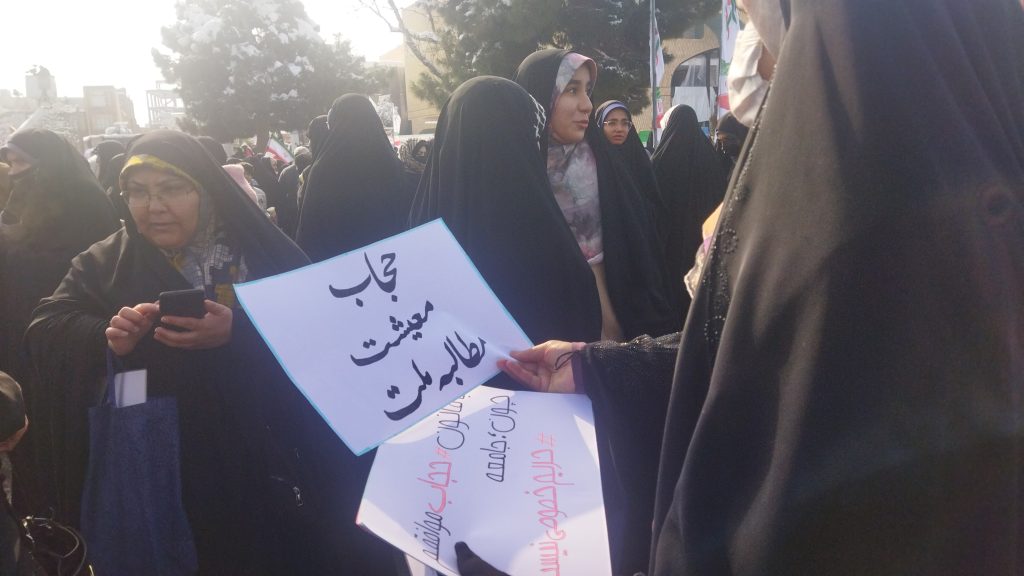 حجاب
معیشت
مطالبه ملت
قانون #حجاب موافقم
چون؛ جامعه
#حریم خصوصی نیست